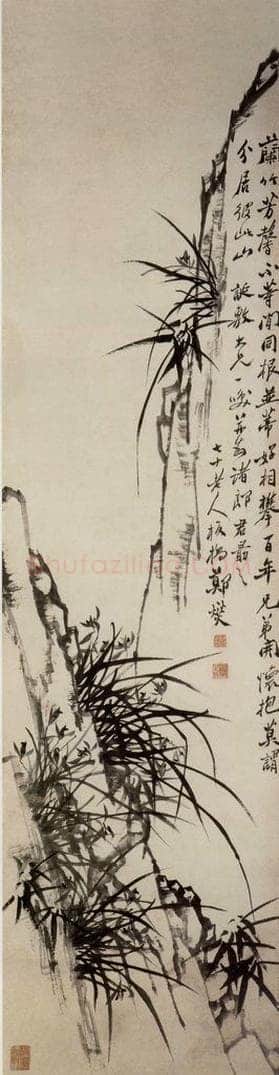 蘭竹芳馨不等閒同根並蒂好相攀百年兄弟開懷抱莫謂
分居彼此山 誕敷大兄一 諸郎君
七十老人板橋鄭燮